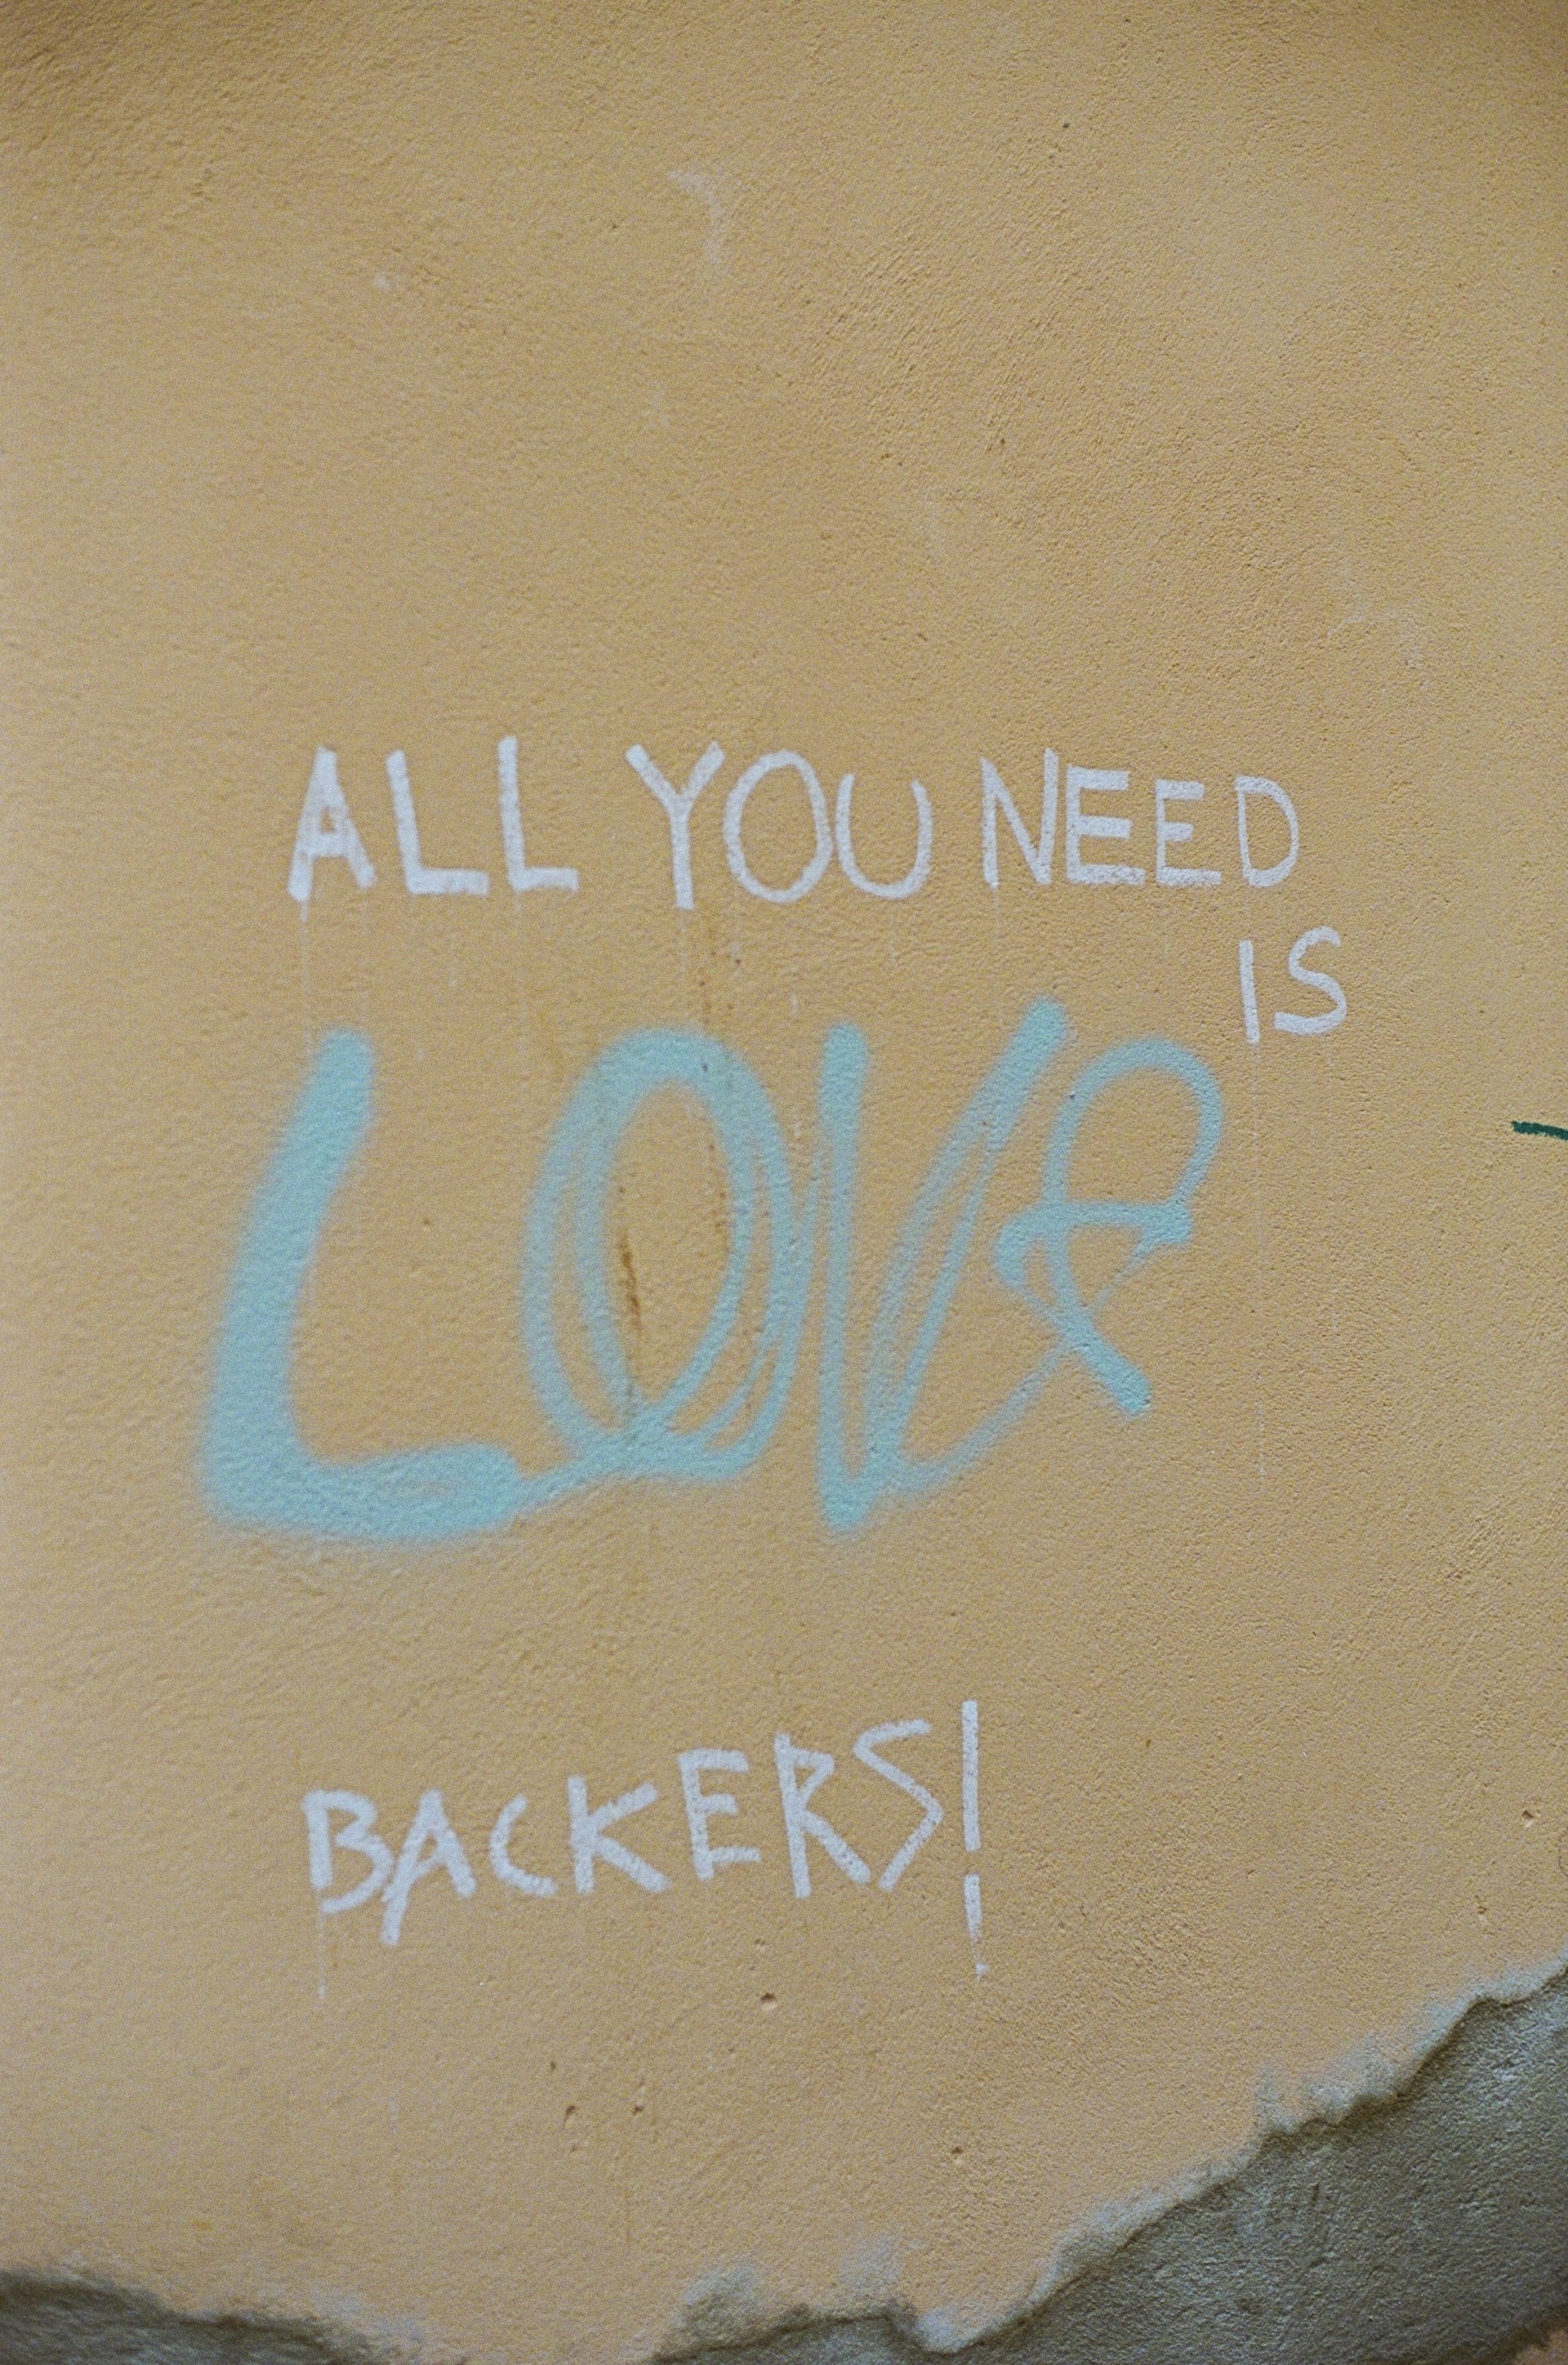 ALL YOU NEED
IS
LOVE
BACKERS!